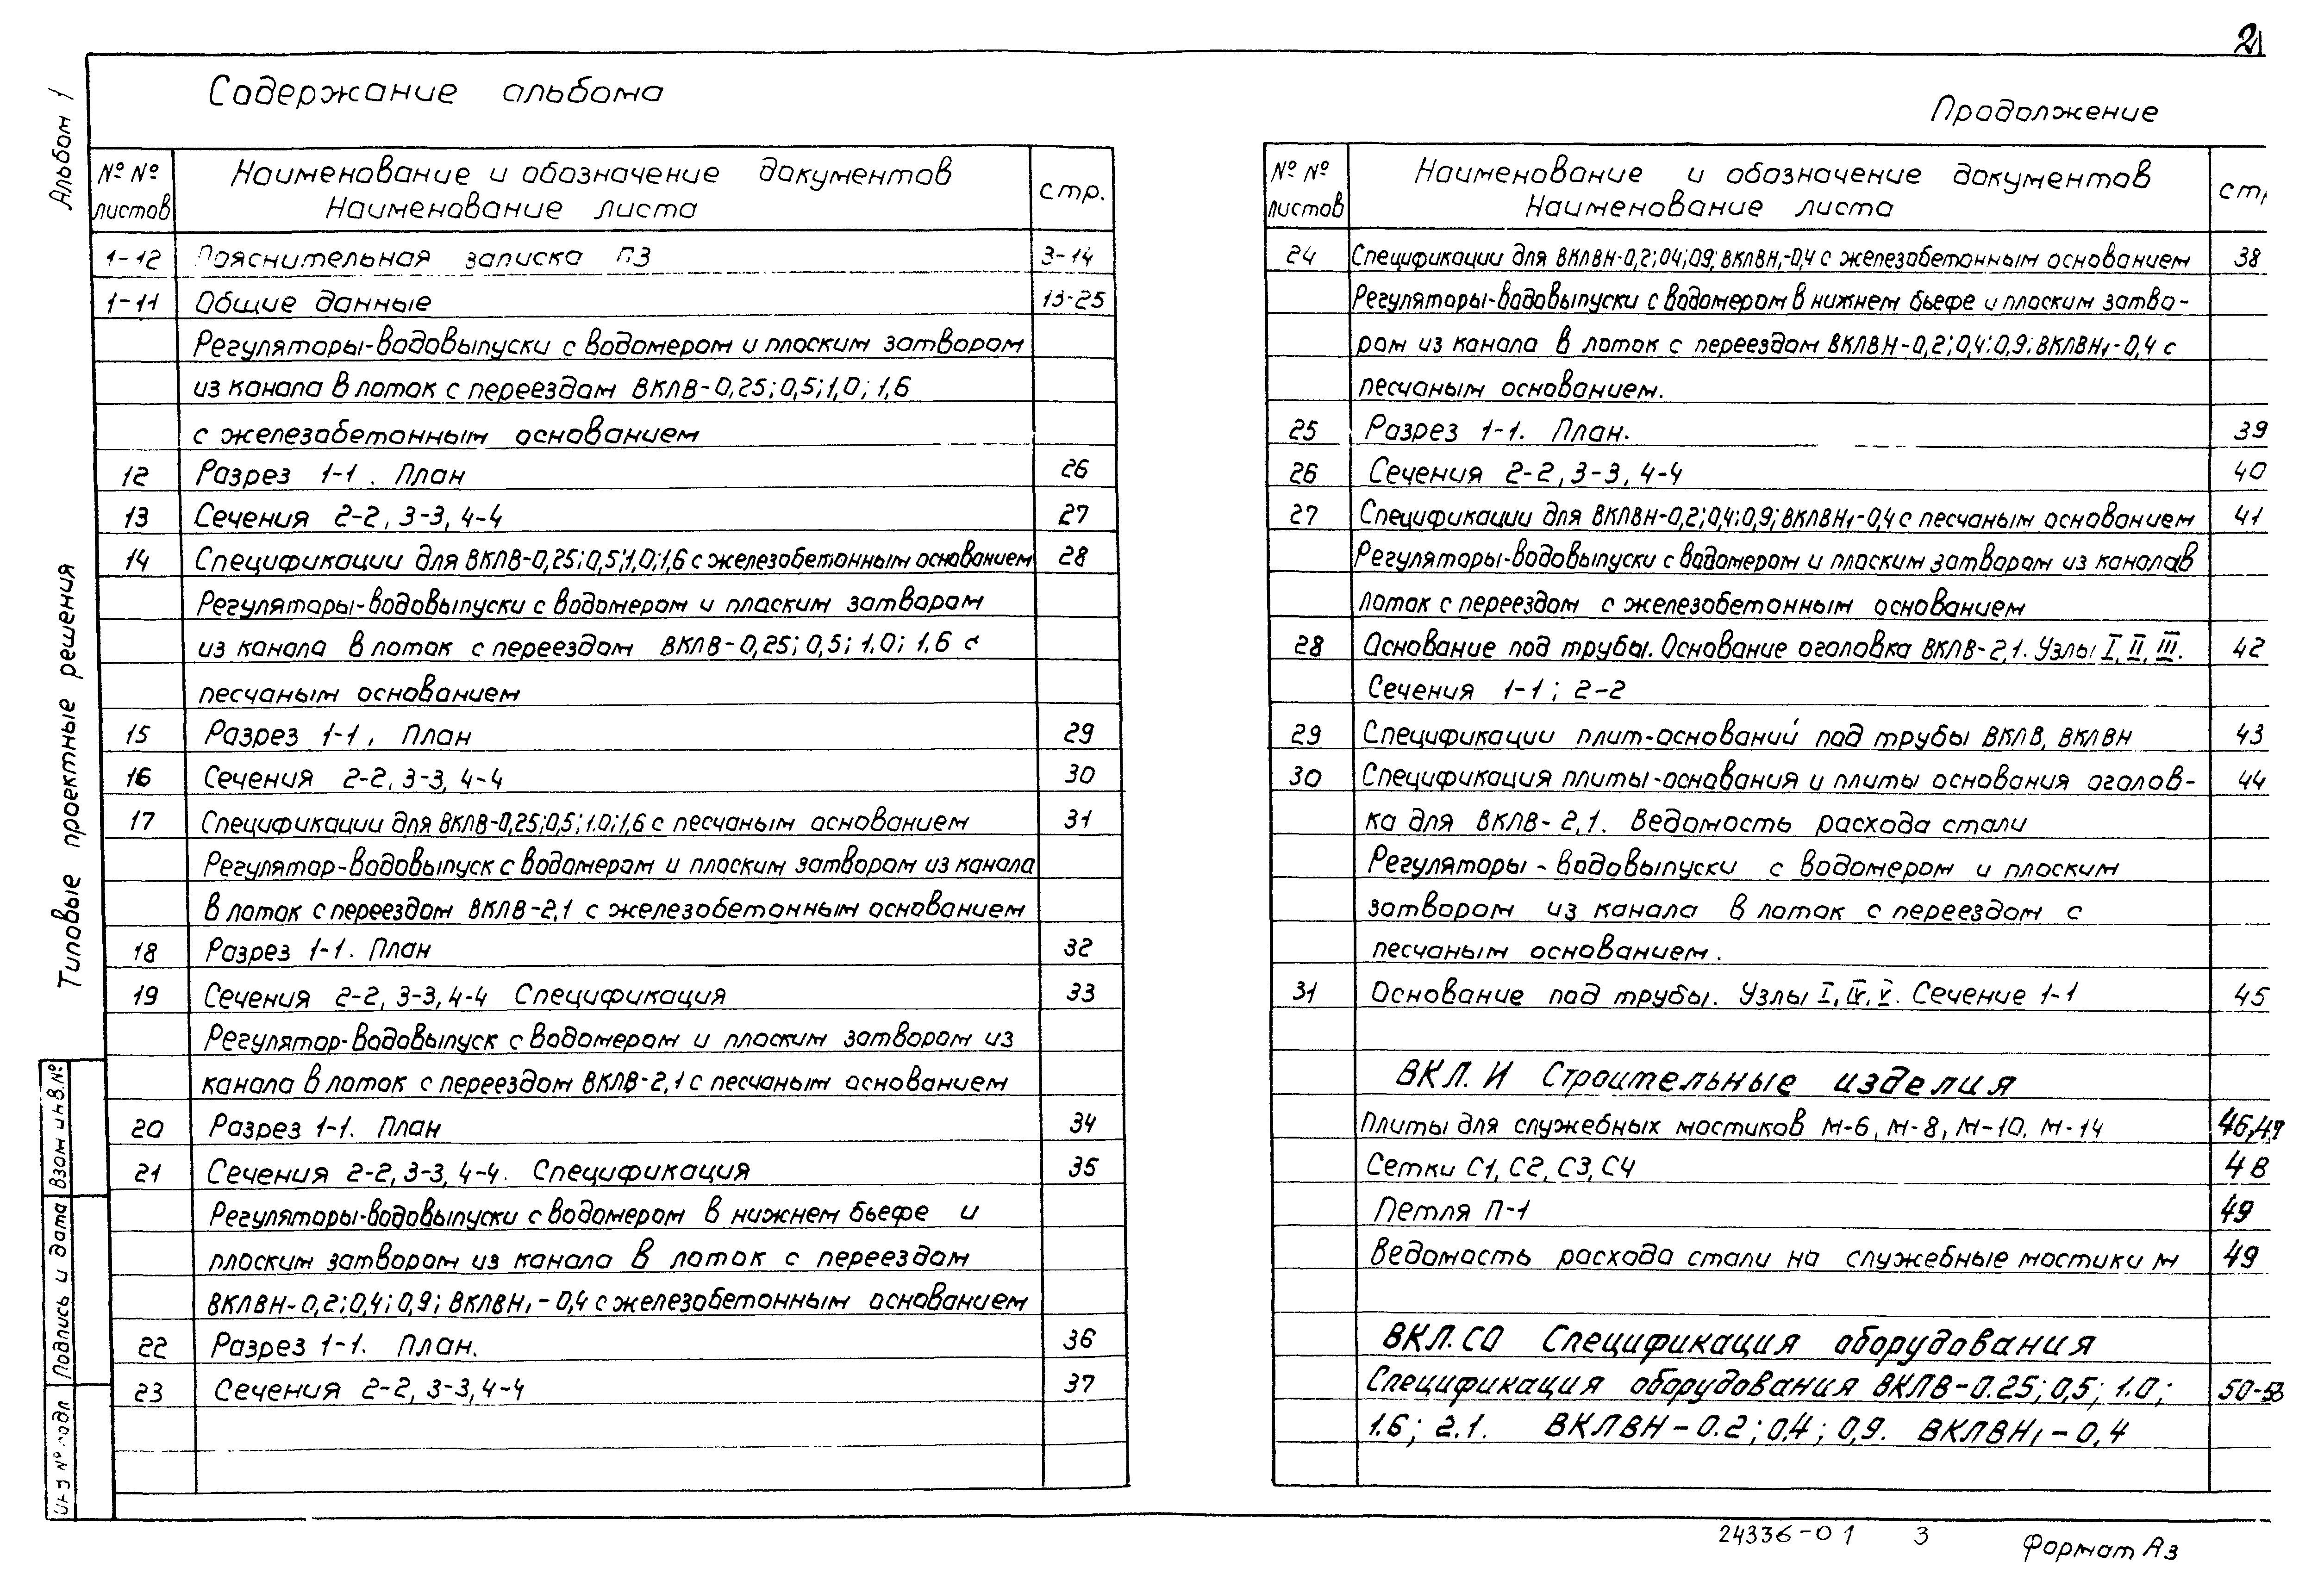 2
Альбом 1
Типовые проектные решения
Взам инв.№
Подпись и дата
Содержание альбома
№ № листов | Наименование и обозначение документов Наименование листа | стр.
1-12 Пояснительная записка ПЗ 3-14
1-11 Общие данные 13-25
Регуляторы-водовыпуски с водомером и плоским затвором
из канала в лоток с переездом ВКЛВ-0,25; 0,5; 1,0; 1,6
с железобетонным основанием
12 Разрез 1-1. План 26
13 Сечения 2-2, 3-3, 4-4 27
14 Спецификации для ВКЛВ-0,25; 0,5; 1,0; 1,6 с железобетонным основанием 28
Регуляторы-водовыпуски с водомером и плоским затвором
из канала в лоток с переездом ВКЛВ-0,25; 0,5; 1.0; 1,6 с
песчаным основанием
15 Разрез 1-1, План 29
16 Сечения 2-2, 3-3, 4-4 30
17 Спецификации для ВКЛВ-0,25; 0,5; 1.0; 1,6 с песчаным основанием 31
Регулятор-водовыпуск с водомером и плоским затвором из канала
в лоток с переездом ВКЛВ-2,1 с железобетонным основанием
18 Разрез 1-1. План 32
19 Сечения 2-2, 3-3, 4-4 Спецификация 33
Регулятор-водовыпуск с водомером и плоским затвором из
канала в лоток с переездом ВКЛВ-2,1 с песчаным основанием
20 Разрез 1-1. План 34
21 Сечения 2-2, 3-3, 4-4. Спецификация 35
Регуляторы-водовыпуски с водомером в нижнем бьефе и
плоским затвором из канала в лоток с переездом
ВКЛВН-0,2; 0,4; 0,9; ВКЛВН₁-0,4 с железобетонным основанием
22 Разрез 1-1. План. 36
23 Сечения 2-2, 3-3, 4-4 37
Продолжение
№ № листов | Наименование и обозначение документов Наименование листа | стр
24 Спецификации для ВКЛВН-0,2; 04; 09; ВКЛВН₁-0,4 с железобетонным основанием 38
Регуляторы-водовыпуски с водомером в нижнем бьефе и плоским затво-
ром из канала в лоток с переездом ВКЛВН-0,2; 0,4; 0,9; ВКЛВН₁-0,4 с
песчаным основанием.
25 Разрез 1-1. План. 39
26 Сечения 2-2, 3-3, 4-4 40
27 Спецификации для ВКЛВН-0,2; 0,4; 0,9; ВКЛВН₁-0,4 с песчаным основанием 41
Регуляторы-водовыпуски с водомером и плоским затвором из канала в
лоток с переездом с железобетонным основанием
28 Основание под трубы. Основание оголовка ВКЛВ-2,1. Узлы I, II, III. 42
Сечения 1-1; 2-2
29 Спецификации плит-оснований под трубы ВКЛВ, ВКЛВН 43
30 Спецификация плиты-основания и плиты основания оголов- 44
ка для ВКЛВ-2,1. Ведомость расхода стали
Регуляторы-водовыпуски с водомером и плоским
затвором из канала в лоток с переездом с
песчаным основанием.
31 Основание под трубы. Узлы I, IV, V. Сечение 1-1 45
ВКЛ.И Строительные изделия
Плиты для служебных мостиков М-6, М-8, М-10, М-14 46,47
Сетки С1, С2, С3, С4 48
Петля П-1 49
Ведомость расхода стали на служебные мостики м 49
ВКЛ.СО Спецификация оборудования
Спецификация оборудования ВКЛВ-0.25; 0,5; 1.0; 50-53
1.6; 2.1. ВКЛВН-0.2; 0.4; 0,9. ВКЛВН₁-0,4
24336-01 3 Формат А3